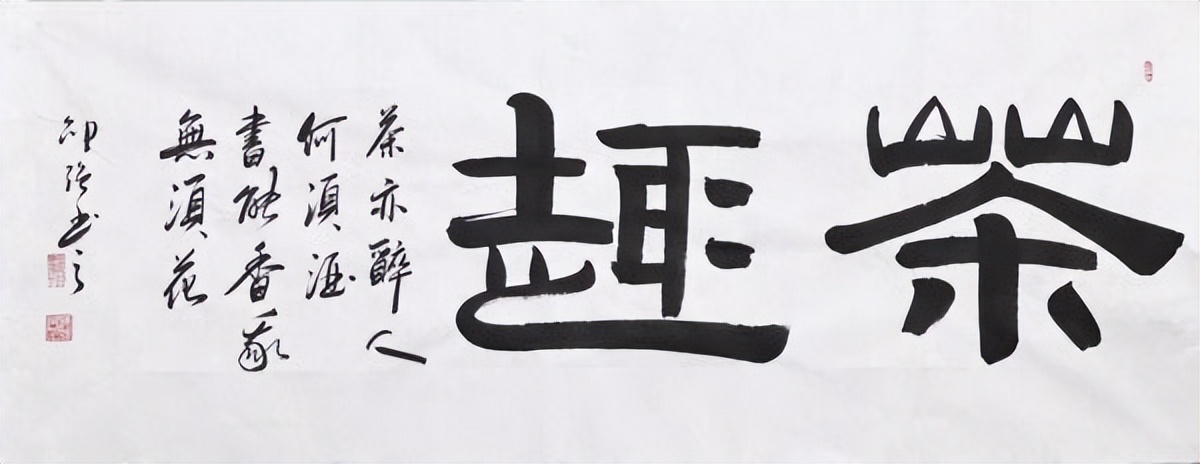 茶趣
茶亦醉人
何須酒
書能香我
無須花
书之